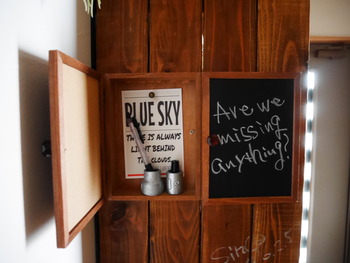 BLUE SKY
THERE IS ALWAYS
LIGHT BEHIND
THE CLOUDS
Are we
missing
anything?